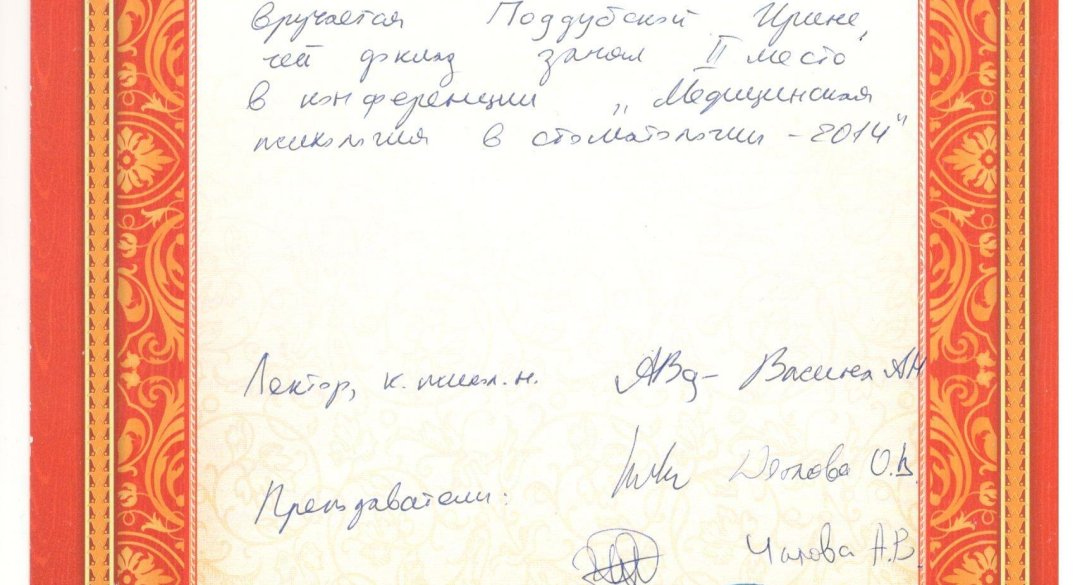 вручается Поддубской Ирине,
чей доклад занял II место
в конференции „Медицинская
психология в стоматологии - 2014"
Лектор, к.психол.н. Васина АН
О.В.
Преподаватели:
Чарова А.В.